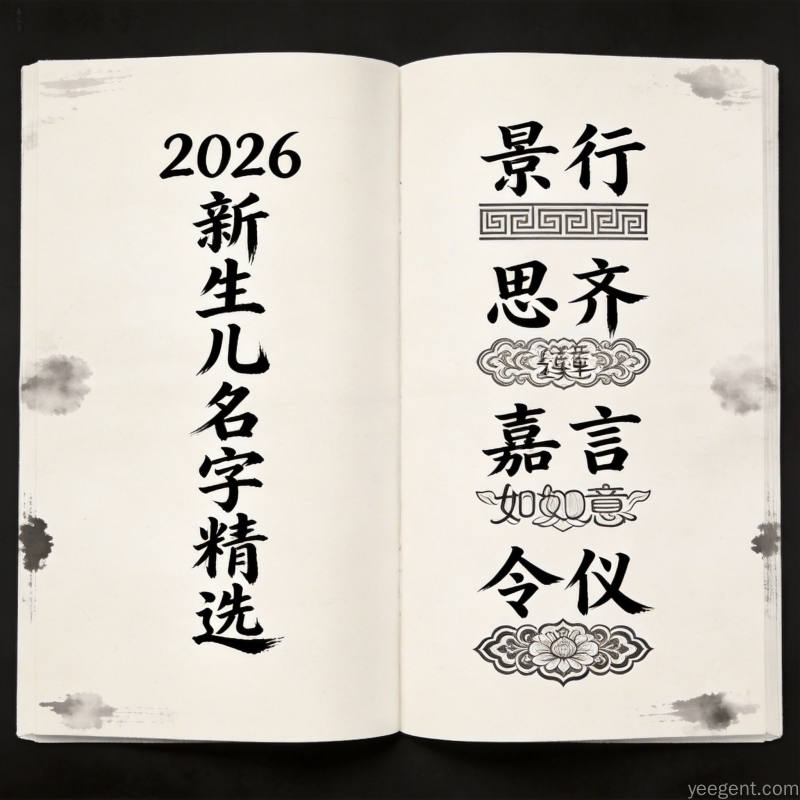 2026
新生儿名字精选
景行
思齐
嘉言
如如意
令仪
yeegent.com